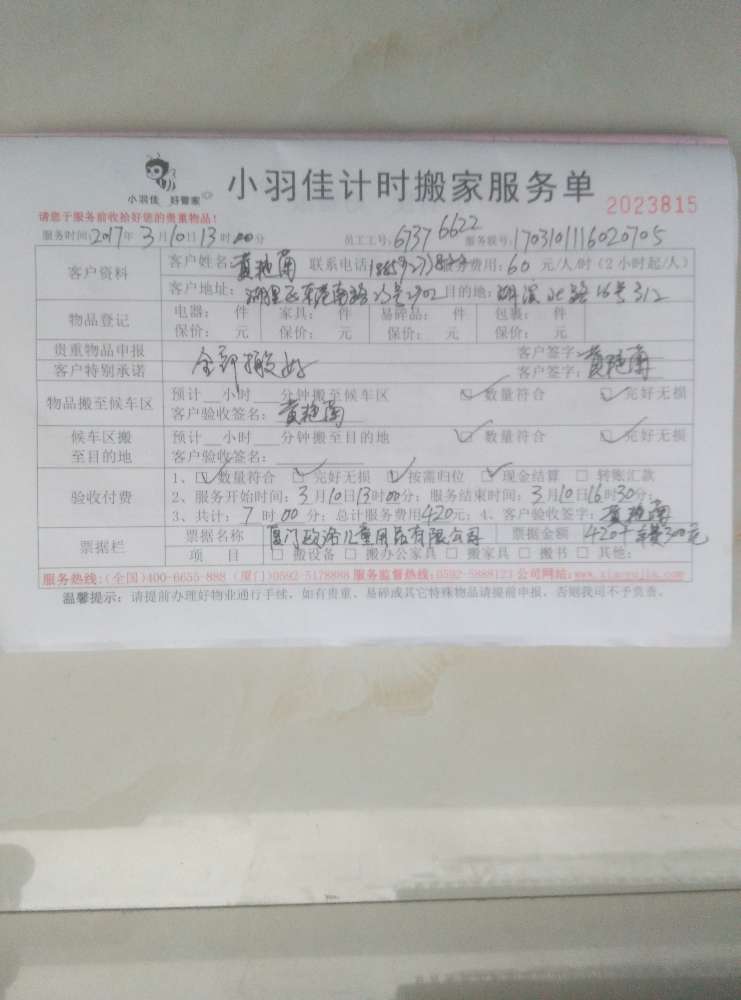 小羽佳 好管家
小羽佳计时搬家服务单
2023815
请您于服务前收拾好您的贵重物品!
服务时间:2017年3月10日13时00分 员工工号:6737 6622 服务单号:1703101116020705
客户资料 客户姓名:黄艳菊 联系电话 服务费用:60元/人/时(2小时起/人)
客户地址:湖里区东港南路 目的地:湖滨北路16号312
物品登记 电器: 件 家具: 件 易碎品: 件 包装: 件
保价: 元 保价: 元 保价: 元 保价: 元
贵重物品申报 客户签字:
客户特别承诺 全部搬好 客户签字:黄艳菊
物品搬至候车区 预计 小时 分钟搬至候车区 数量符合 完好无损
客户验收签名:黄艳菊
候车区搬至目的地 预计 小时 分钟搬至目的地 数量符合 完好无损
客户验收签名:
验收付费 1、数量符合 完好无损 按需归位 现金结算 转账汇款
2、服务开始时间:3月10日13时00分;服务结束时间:3月10日16时30分;
3、共计:7时00分;总计服务费用420元;4、客户验收签字:黄艳菊
票据栏 票据名称 厦门 儿童用品有限公司 票据金额 420+车费300元
项目 搬设备 搬办公家具 搬家具 搬书 其他:
服务热线:(全国)400-6655-888 (厦门)0592-5178888 服务监督热线:0592-5888123 公司网站:www.xiaoyujia.com
温馨提示:请提前办理好物业通行手续,如有贵重、易碎或其它特殊物品请提前申报,否则我司不予负责。